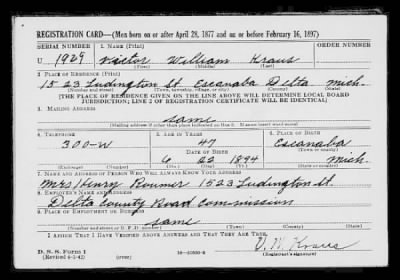 REGISTRATION CARD—(Men born on or after April 28, 1877 and on or before February 16, 1897)
SERIAL NUMBER 1. NAME (Print) ORDER NUMBER
U 1929 Victor William Kraus
(First) (Middle) (Last)
2. PLACE OF RESIDENCE (Print)
1523 Ludington St Escanaba Delta Mich.
(Number and street) (Town, township, village, or city) (County) (State)
[THE PLACE OF RESIDENCE GIVEN ON THE LINE ABOVE WILL DETERMINE LOCAL BOARD
JURISDICTION; LINE 2 OF REGISTRATION CERTIFICATE WILL BE IDENTICAL]
3. MAILING ADDRESS
same
[Mailing address if other than place indicated on line 2. If same insert word same]
4. TELEPHONE 5. AGE IN YEARS 6. PLACE OF BIRTH
300-W 47 Escanaba
DATE OF BIRTH (Town or county)
6 22 1894 Mich.
(Exchange) (Number) (Mo.) (Day) (Yr.) (State or country)
7. NAME AND ADDRESS OF PERSON WHO WILL ALWAYS KNOW YOUR ADDRESS
Mrs Henry 1523 Ludington St.
8. EMPLOYER'S NAME AND ADDRESS
Delta County Road Commission
9. PLACE OF EMPLOYMENT OR BUSINESS
same
(Number and street or R. F. D. number) (Town) (County) (State)
I AFFIRM THAT I HAVE VERIFIED ABOVE ANSWERS AND THAT THEY ARE TRUE.
D. S. S. Form 1
(Revised 4-1-42) (over) V. W. Kraus
(Registrant's signature)